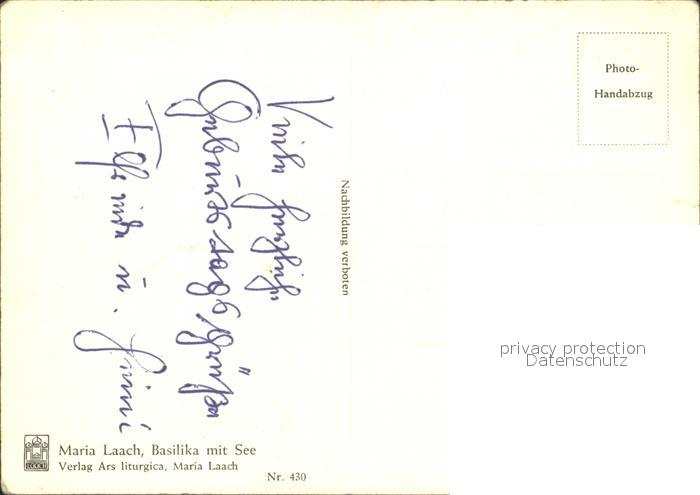 Photo-
Handabzug
Viele herzliche
Geburtstagsgrüße
u.
Nachbildung verboten
privacy protection
Datenschutz
Maria Laach, Basilika mit See
Verlag Ars liturgica, Maria Laach
Nr. 430